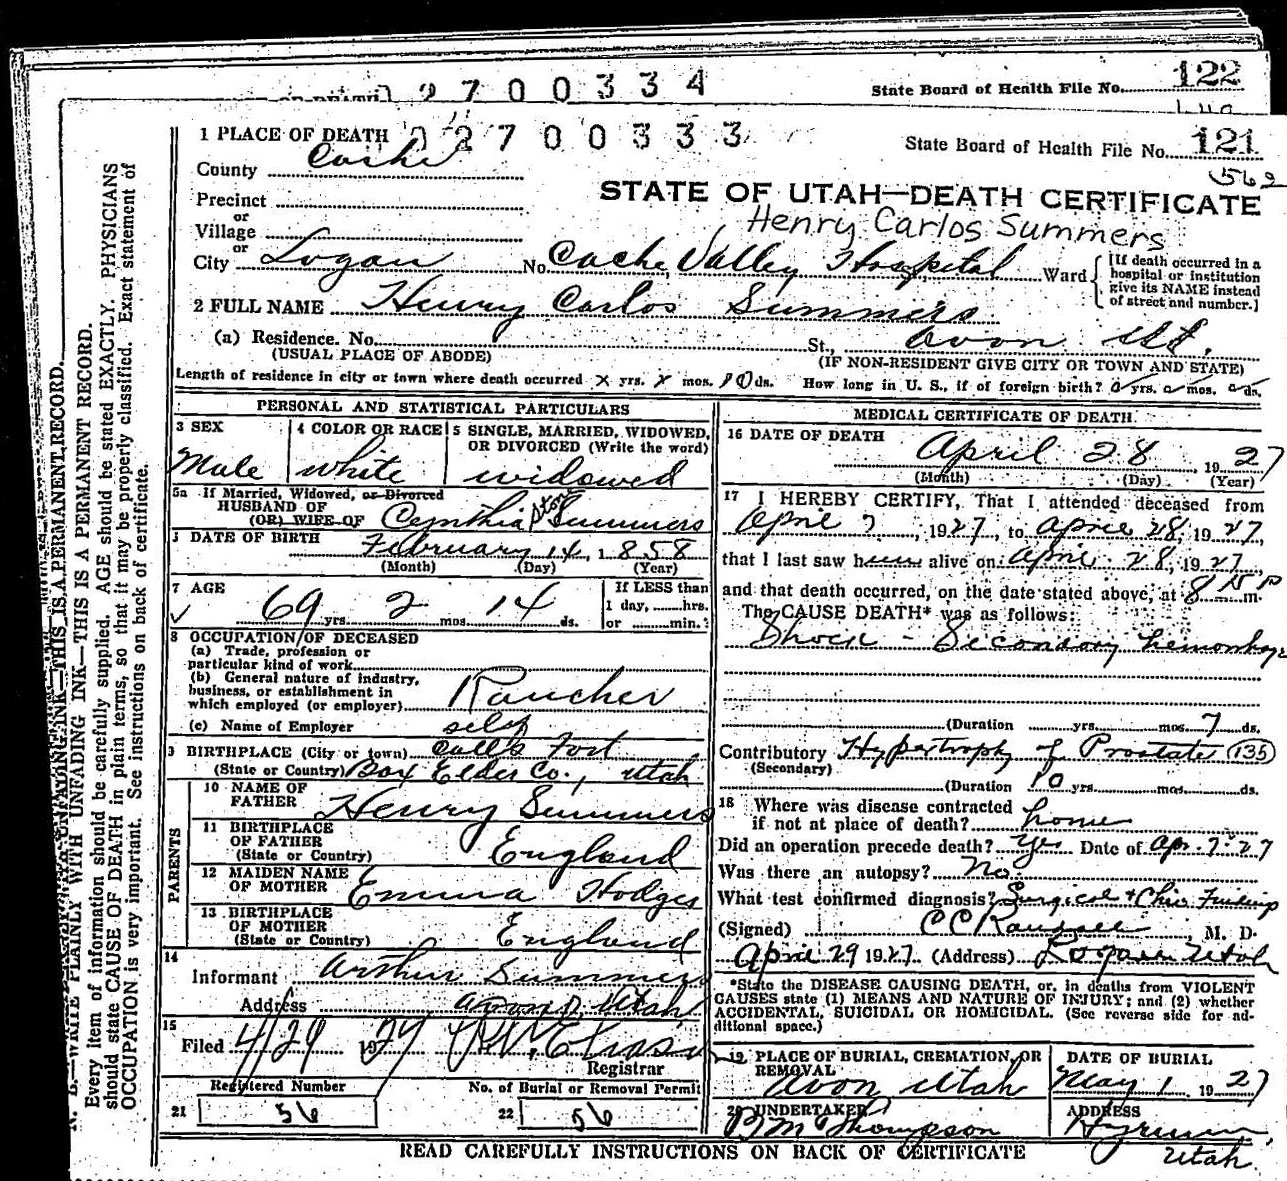 2700334
State Board of Health File No. 122
1 PLACE OF DEATH 02700333
State Board of Health File No. 121
562
County Cache
STATE OF UTAH—DEATH CERTIFICATE
Henry Carlos Summers
Precinct
or
Village
or
City Logan No Cache Valley Hospital Ward
[If death occurred in a hospital or institution give its NAME instead of street and number.]
2 FULL NAME Henry Carlos Summers
(a) Residence. No. St., Avon Ut.
(USUAL PLACE OF ABODE) (IF NON-RESIDENT GIVE CITY OR TOWN AND STATE)
Length of residence in city or town where death occurred x yrs. x mos. ds. How long in U. S., if of foreign birth? yrs. mos. ds.
PERSONAL AND STATISTICAL PARTICULARS
3 SEX 4 COLOR OR RACE 5 SINGLE, MARRIED, WIDOWED, OR DIVORCED (Write the word)
Male white widowed
5a If Married, Widowed, or Divorced
HUSBAND OF
(OR) WIFE OF Cynthia Summers
DATE OF BIRTH February 14, 1858
(Month) (Day) (Year)
7 AGE 69 yrs. 2 mos. 14 ds.
If LESS than
1 day, hrs.
or min.
8 OCCUPATION OF DECEASED
(a) Trade, profession or
particular kind of work
(b) General nature of industry,
business, or establishment in
which employed (or employer) Rancher
(c) Name of Employer self
9 BIRTHPLACE (City or town) Calls Fort
(State or Country) Box Elder Co., Utah
PARENTS
10 NAME OF
FATHER Henry Summers
11 BIRTHPLACE
OF FATHER
(State or Country) England
12 MAIDEN NAME
OF MOTHER Emma Hodges
13 BIRTHPLACE
OF MOTHER
(State or Country) England
14
Informant Arthur Summers
Address Avon, Utah
15
Filed 4/29 1927
Registrar
Registered Number No. of Burial or Removal Permit
21 56 22 56
MEDICAL CERTIFICATE OF DEATH
16 DATE OF DEATH April 28, 1927
(Month) (Day) (Year)
17 I HEREBY CERTIFY, That I attended deceased from
April 7, 1927, to April 28, 1927,
that I last saw h alive on April 28, 1927,
and that death occurred, on the date stated above, at 8 15 P m.
The CAUSE DEATH* was as follows:
Shock - Secondary hemorrhage
(Duration yrs. mos. 7 ds.
Contributory Hypertrophy of Prostate (135)
(Secondary)
(Duration 10 yrs. mos. ds.
18 Where was disease contracted
if not at place of death? home
Did an operation precede death? Yes Date of Apr. 7-27
Was there an autopsy? No.
What test confirmed diagnosis? Surgical & Findings
(Signed) C C Randall, M. D.
April 29 1927. (Address) Logan Utah
*State the DISEASE CAUSING DEATH, or, in deaths from VIOLENT
CAUSES state (1) MEANS AND NATURE OF INJURY; and (2) whether
ACCIDENTAL, SUICIDAL OR HOMICIDAL. (See reverse side for ad-
ditional space.)
19 PLACE OF BURIAL, CREMATION, OR
REMOVAL
Avon Utah
DATE OF BURIAL
May 1, 1927
20 UNDERTAKER
Thompson
ADDRESS
Hyrum,
Utah.
READ CAREFULLY INSTRUCTIONS ON BACK OF CERTIFICATE
N. B.—WRITE PLAINLY WITH UNFADING INK—THIS IS A PERMANENT RECORD.
Every item of information should be carefully supplied. AGE should be stated EXACTLY. PHYSICIANS
should state CAUSE OF DEATH in plain terms, so that it may be properly classified. Exact statement of
OCCUPATION is very important. See instructions on back of certificate.